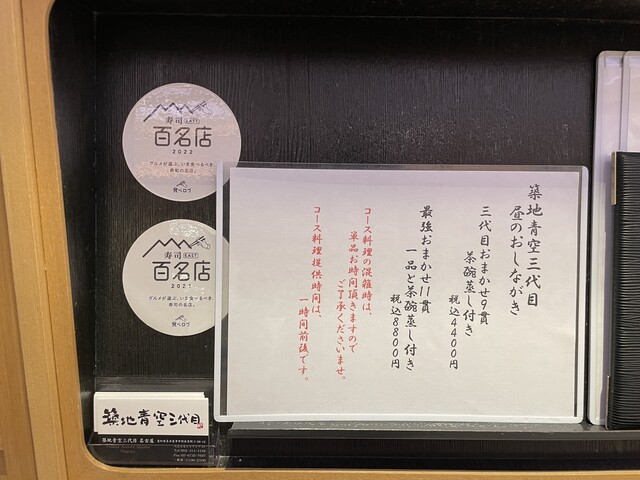 寿司 EAST
百名店
2022
グルメが選ぶ、いま食べるべき、
寿司の名店。
食べログ
寿司 EAST
百名店
2021
グルメが選ぶ、いま食べるべき、
寿司の名店。
食べログ
築地青空三代目
昼のおしながき
三代目おまかせ9貫
茶碗蒸し付き
税込4400円
最強おまかせ11貫
一品と茶碗蒸し付き
税込8800円
コース料理の混雑時は、
単品お時間頂きますので
ご了承くださいませ。
コース料理提供時間は、
一時間前後です。
築地青空三代目
築地青空三代目 名古屋